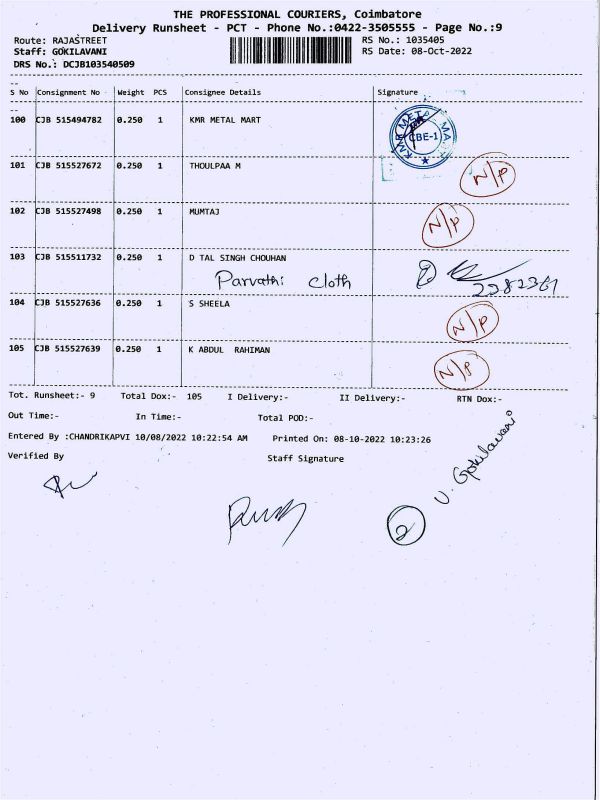 THE PROFESSIONAL COURIERS, Coimbatore
Delivery Runsheet - PCT - Phone No.:0422-3505555 - Page No.:9
Route: RAJASTREET RS No.: 1035405
Staff: GOKILAVANI RS Date: 08-Oct-2022
DRS No.: DCJB103540509
S No Consignment No Weight PCS Consignee Details Signature
100 CJB 515494782 0.250 1 KMR METAL MART
KMR METAL MA CBE-1
101 CJB 515527672 0.250 1 THOULPAA M N/P
102 CJB 515527498 0.250 1 MUMTAJ N/P
103 CJB 515511732 0.250 1 D TAL SINGH CHOUHAN
Parvathi cloth 2382361
104 CJB 515527636 0.250 1 S SHEELA N/P
105 CJB 515527639 0.250 1 K ABDUL RAHIMAN N/P
Tot. Runsheet:- 9 Total Dox:- 105 I Delivery:- II Delivery:- RTN Dox:-
Out Time:- In Time:- Total POD:-
Entered By :CHANDRIKAPVI 10/08/2022 10:22:54 AM Printed On: 08-10-2022 10:23:26
Verified By Staff Signature
U. Gokilavani
2